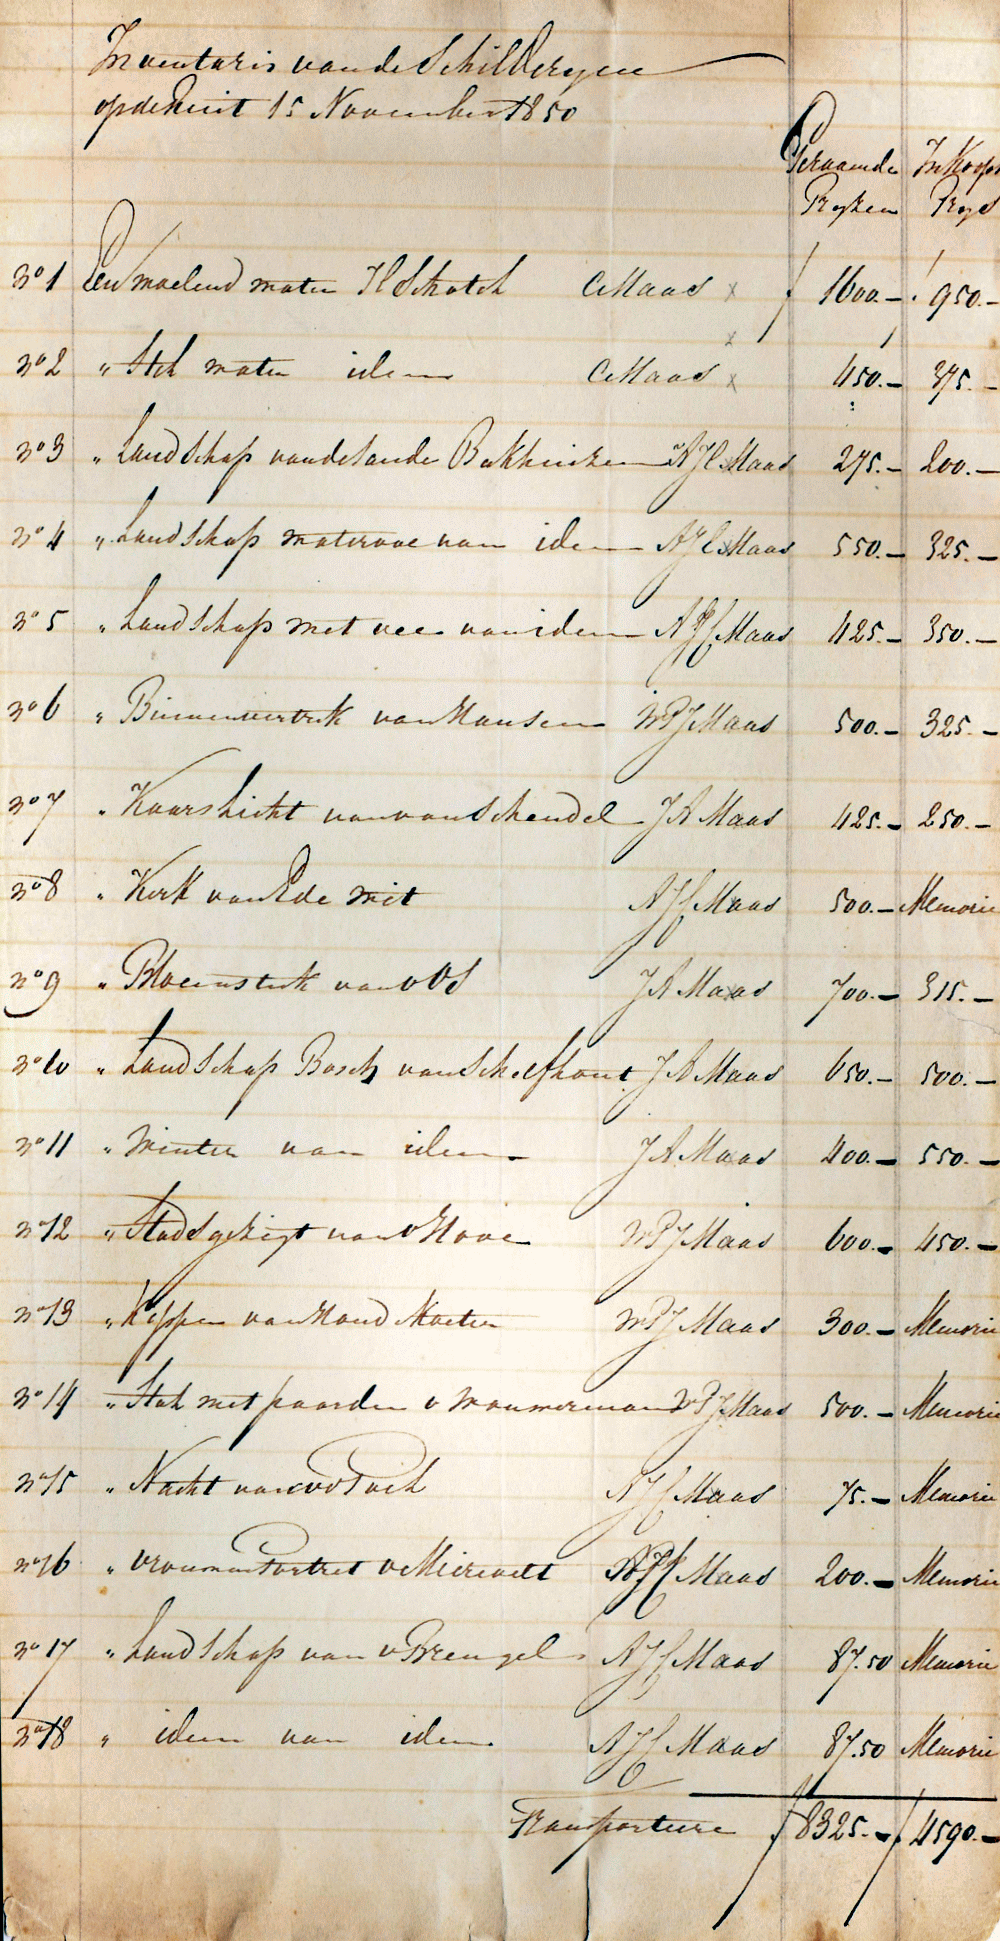 Inventaris van de Schilderyen
op de Kuit 15 November 1850
Geraamde Pryzen Inkoops Prys
No 1 Een woelend water H Schotel C Maas x f 1600.- f 950.-
No 2 " Stil water idem C Maas x 450.- 375.-
No 3 " Landschap van de Sande Bakhuizen A J C Maas 275.- 200.-
No 4 " Landschap van idem A J C Maas 550.- 325.-
No 5 " Landschap met vee van idem A J C Maas 425.- 350.-
No 6 " Binnenvertrek van Hansen W P J Maas 500.- 325.-
No 7 " Kaarslicht van van Schendel J A Maas 425.- 250.-
No 8 " Kerk van E de Wit A J C Maas 500.- Memorie
No 9 " Bloemstuk van v Os J A Maas 700.- 315.-
No 10 " Landschap Bosch van Schelfhout J A Maas 650.- 500.-
No 11 " Winter van idem J A Maas 400.- 550.-
No 12 " Stadsgezigt van v Hove W P J Maas 600.- 450.-
No 13 " Kippen van Hondekoeter W P J Maas 300.- Memorie
No 14 " Stal met paarden v Wouwerman W P J Maas 500.- Memorie
No 15 " Nacht van vd Poel A J C Maas 75.- Memorie
No 16 " Vrouwen Portret v Mierevelt A J C Maas 200.- Memorie
No 17 " Landschap van v Breugel A J C Maas 87.50 Memorie
No 18 " idem van idem A J C Maas 87.50 Memorie
Transporteere f 8325.- f 4590.-